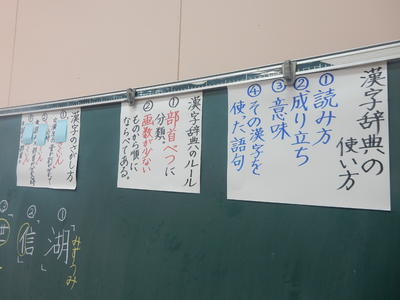 漢字辞典の
使い方
①読み方
②成り立ち
③意味
④その漢字を
使った語句
漢字辞典のルール
①部首べつに
分類。
②画数が少ない
ものから順に
ならべてある。
漢字のさがし方
①湖
みずうみ
②信